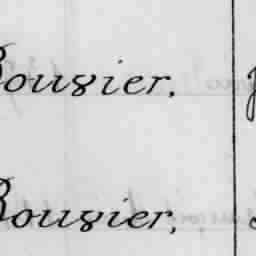 Bouvier.
Bouvier,